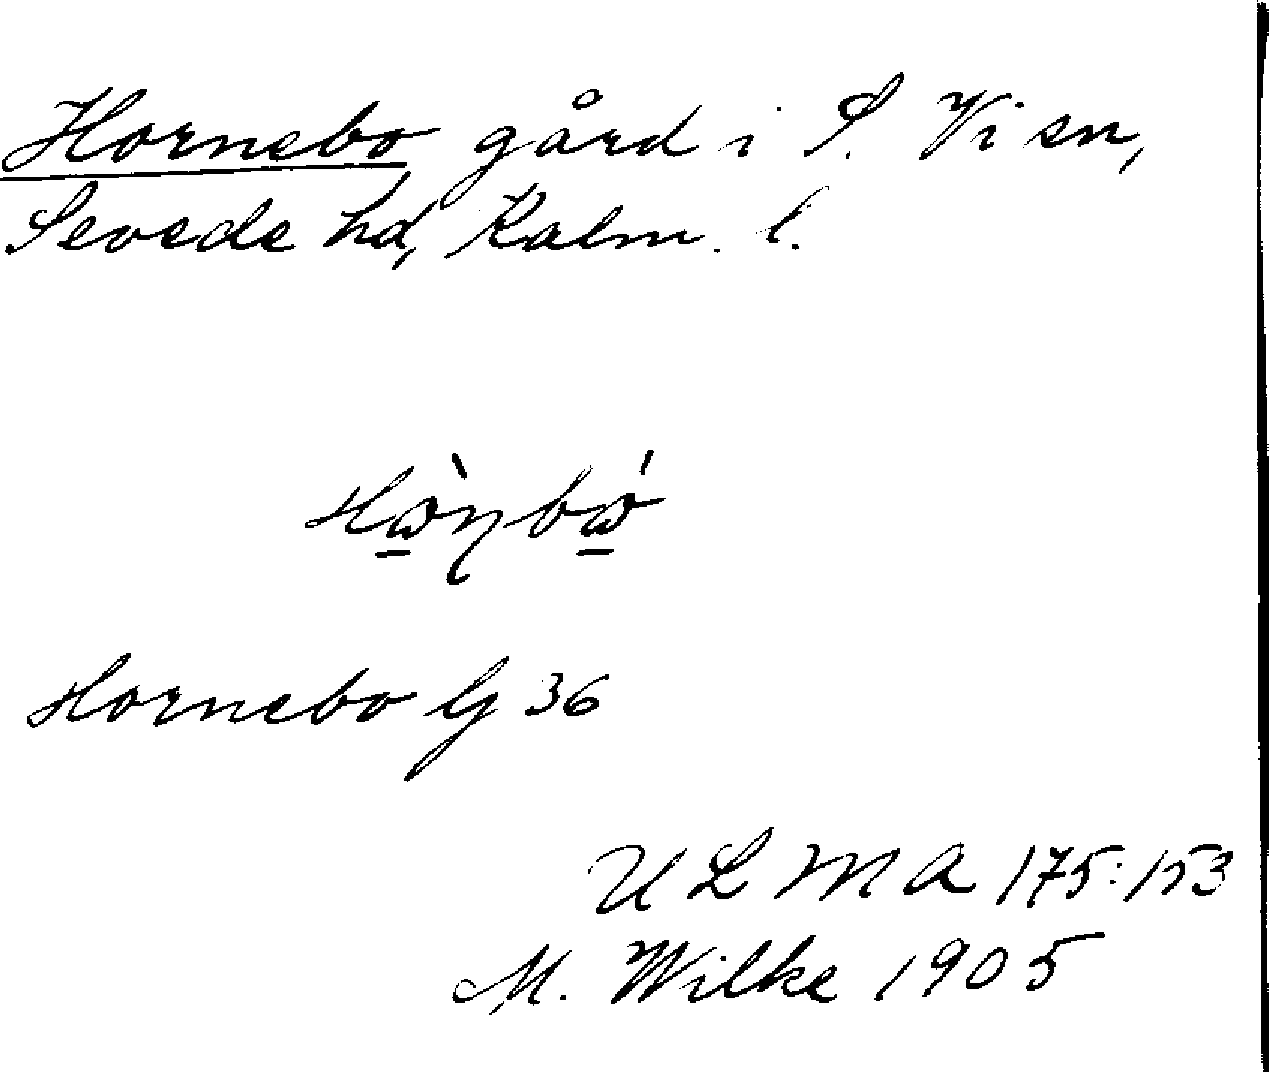 Hornebo gård i S. Vi sn,
Sevede hd, Kalm. l.
Hornebo G 36
ULMA 175:153
M. Wilke 1905